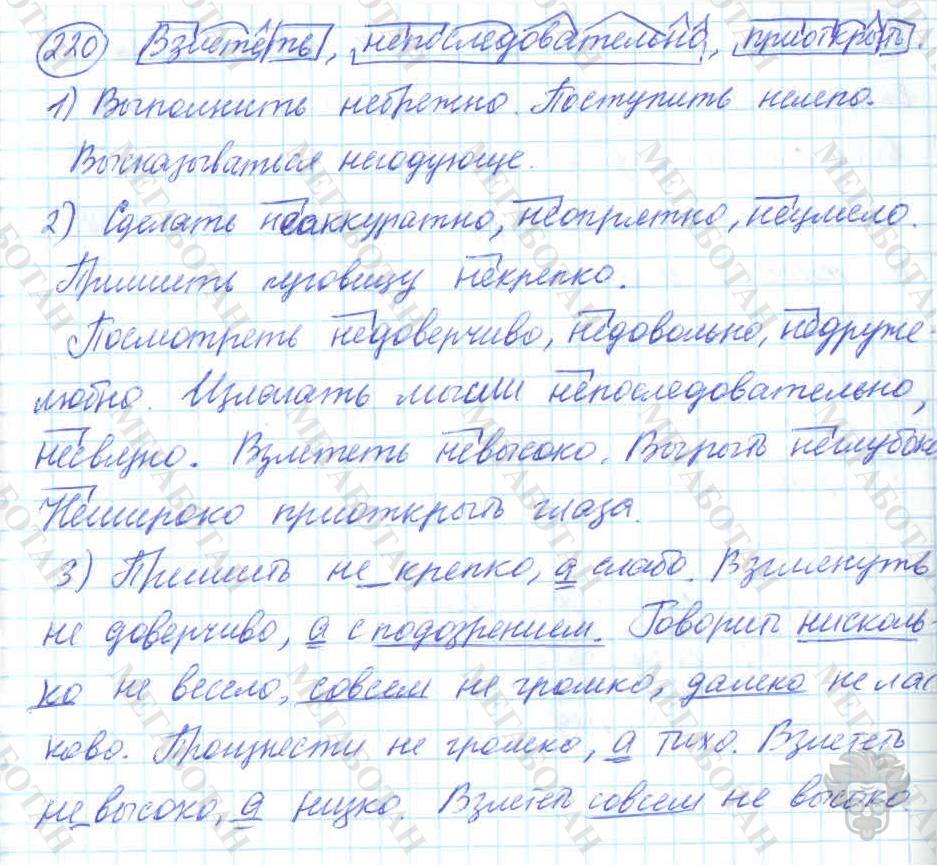 220 Взлететь, непоследовательно, приоткрыть.
1) Выполнить небрежно. Поступить нелепо.
Высказываться негодующе.
2) Сделать неаккуратно, неопрятно, неумело.
Пришить пуговицу некрепко.
Посмотреть недоверчиво, недовольно, недруже-
любно. Излагать мысли непоследовательно,
несвязно. Взлететь невысоко. Вырыть неглубоко
Нешироко приоткрыть глаза.
3) Пришить не крепко, а слабо. Взглянуть
не доверчиво, а с подозрением. Говорить нисколь-
ко не весело, совсем не громко, далеко не лас
ково. Произнести не громко, а тихо. Взлететь
не высоко, а низко. Взлететь совсем не высоко
МЕГАБОТАН